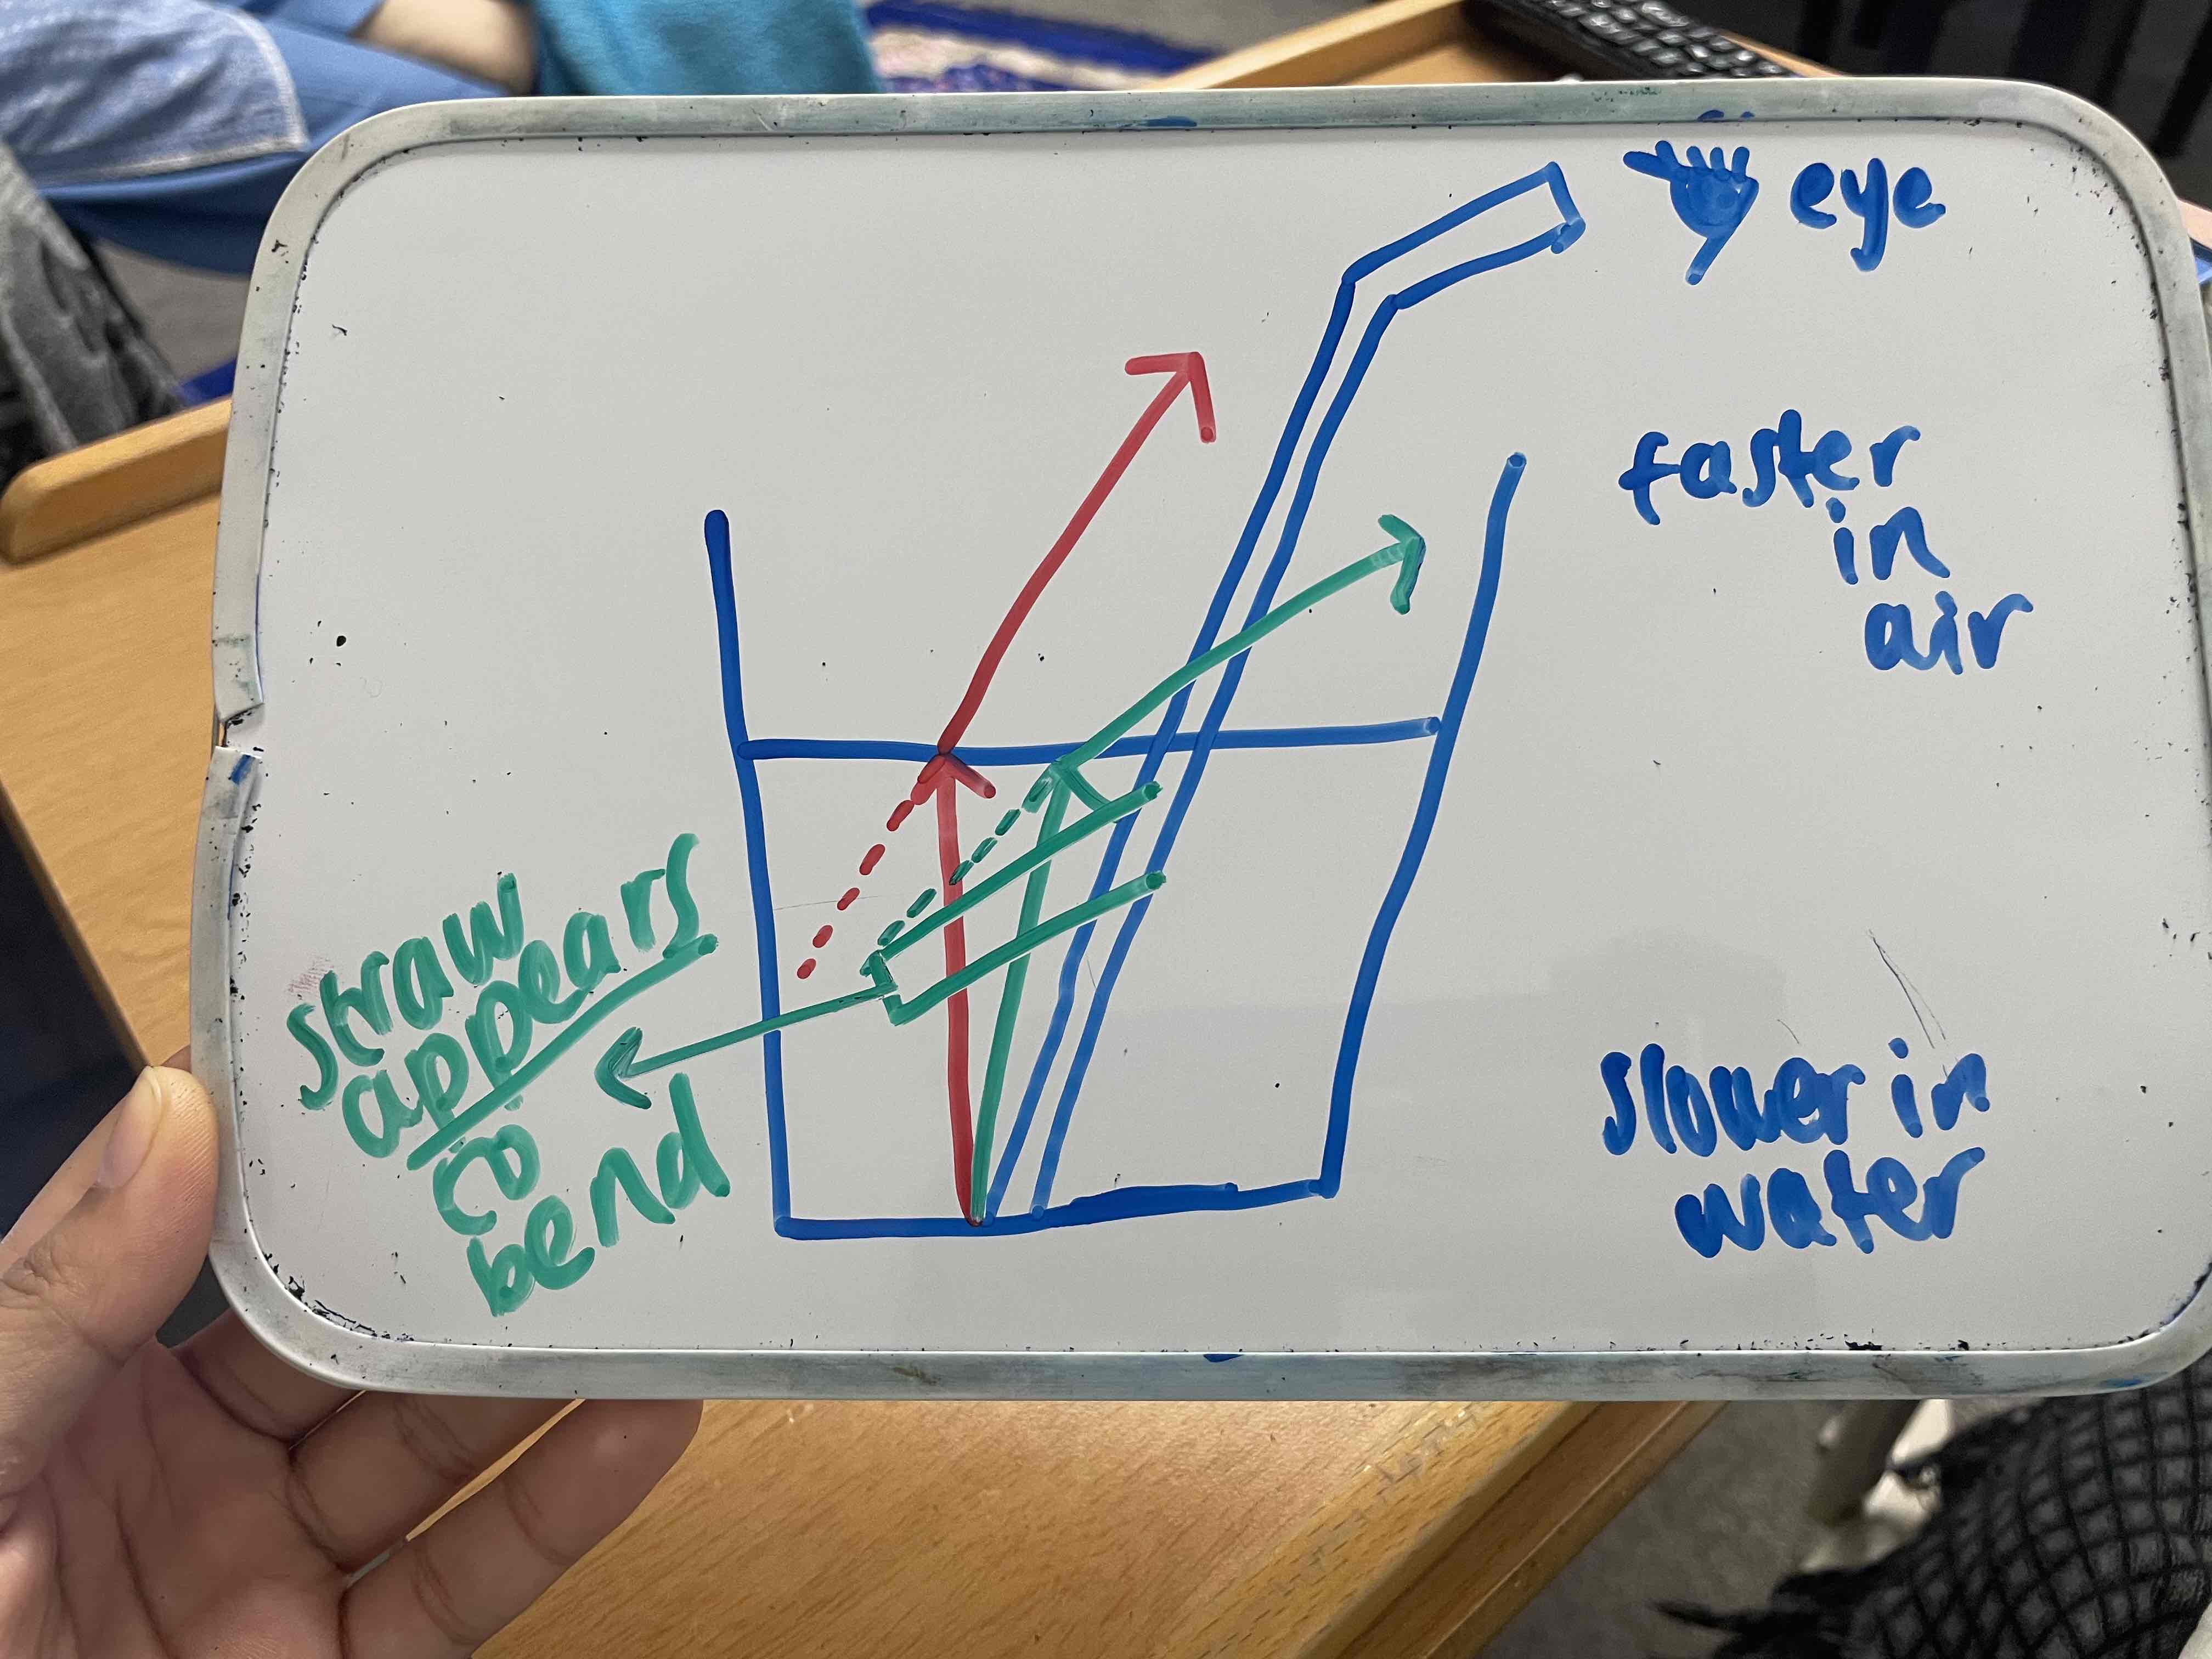 eye
faster
in
air
straw
appears
to
bend
slower in
water